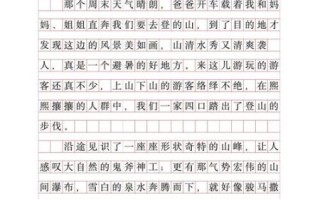 那个周末天气晴朗，爸爸开车载着我和妈
妈、姐姐直奔我们要去登的山，到了目的地才
发现这边的风景美如画，山清水秀又清爽袭
人，真是一个避暑的好地方。来这儿游玩的游
客还真不少，上山下山的游客络绎不绝，在熙
熙攘攘的人群中，我们一家四口踏出了登山的
步伐。
沿途见识了一座座形状奇特的山峰，让人
感叹大自然的鬼斧神工；更有那气势宏伟的山
间瀑布，雪白的泉水奔腾而下，就好像骏马撒